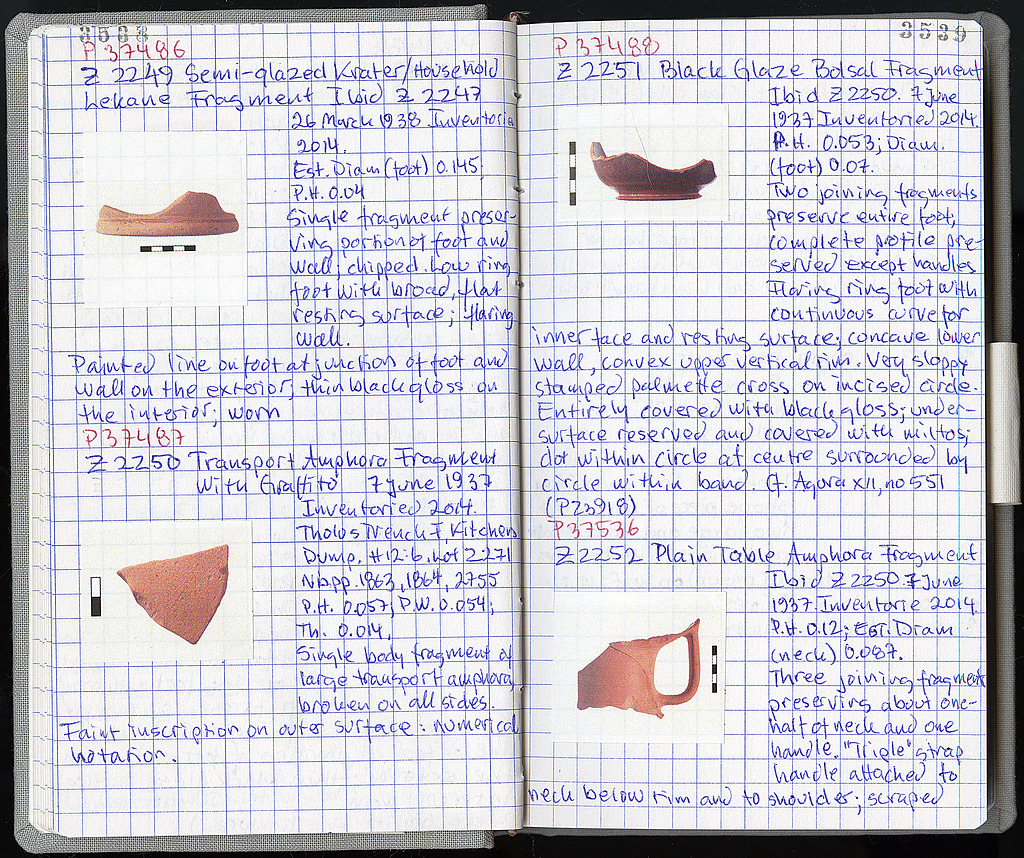 3538
P 37486
Z 2249 Semi-glazed Krater/Household
Lekane Fragment Ibid Z 2247
26 March 1938 Inventorie
2014.
Est. Diam (foot) 0.145;
P.H. 0.04
Single fragment preser-
ving portion of foot and
wall; chipped. Low ring
foot with broad, flat
resting surface; flaring
wall.
Painted line on foot at junction of foot and
wall on the exterior; thin black gloss on
the interior; worn
P 37487
Z 2250 Transport Amphora Fragment
With Graffito 7 June 1937
Inventoried 2014.
Tholos Trench I, Kitchen
Dump. H 12:6. Lot Z 271
Nb pp. 1863, 1864, 2755
P.H. 0.057; P.W. 0.054;
Th. 0.014.
Single body fragment of
large transport amphora,
broken on all sides.
Faint inscription on outer surface: numerical
notation.
3539
P 37488
Z 2251 Black Glaze Bolsal Fragment
Ibid Z 2250. 7 June
1937 Inventoried 2014.
P.H. 0.053; Diam.
(foot) 0.07.
Two joining fragments
preserve entire foot;
complete profile pre-
served except handles
Flaring ring foot with
continuous curve for
inner face and resting surface; concave lower
wall, convex upper vertical rim. Very sloppy
stamped palmette cross on incised circle.
Entirely covered with black gloss; under-
surface reserved and covered with miltos;
dot within circle at centre surrounded by
circle within band. Cf. Agora XII, no 551
(P23918)
P 37536
Z 2252 Plain Table Amphora Fragment
Ibid Z 2250 7 June
1937. Inventorie 2014.
P.H. 0.12; Est. Diam
(neck) 0.087.
Three joining fragment
preserving about one-
half of neck and one
handle. "Triple" strap
handle attached to
neck below rim and to shoulder; scraped